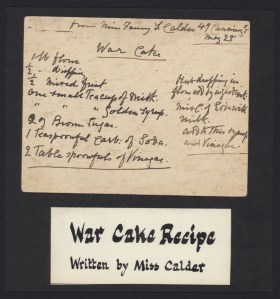 from Miss Fanny L Calder 49 Canning St
May 29
War Cake
1 lb flour
½ " dripping
½ " mixed fruit
one small Teacup of Milk.
" " " Golden Syrup.
2 oz Brown Sugar.
1 Teaspoonful Carb. of Soda.
2 Tablespoonfuls of Vinegar.
Rub dripping in
flour add
Mix C of Soda with
milk.
add
and Vinegar.
War Cake Recipe
Written by Miss Calder